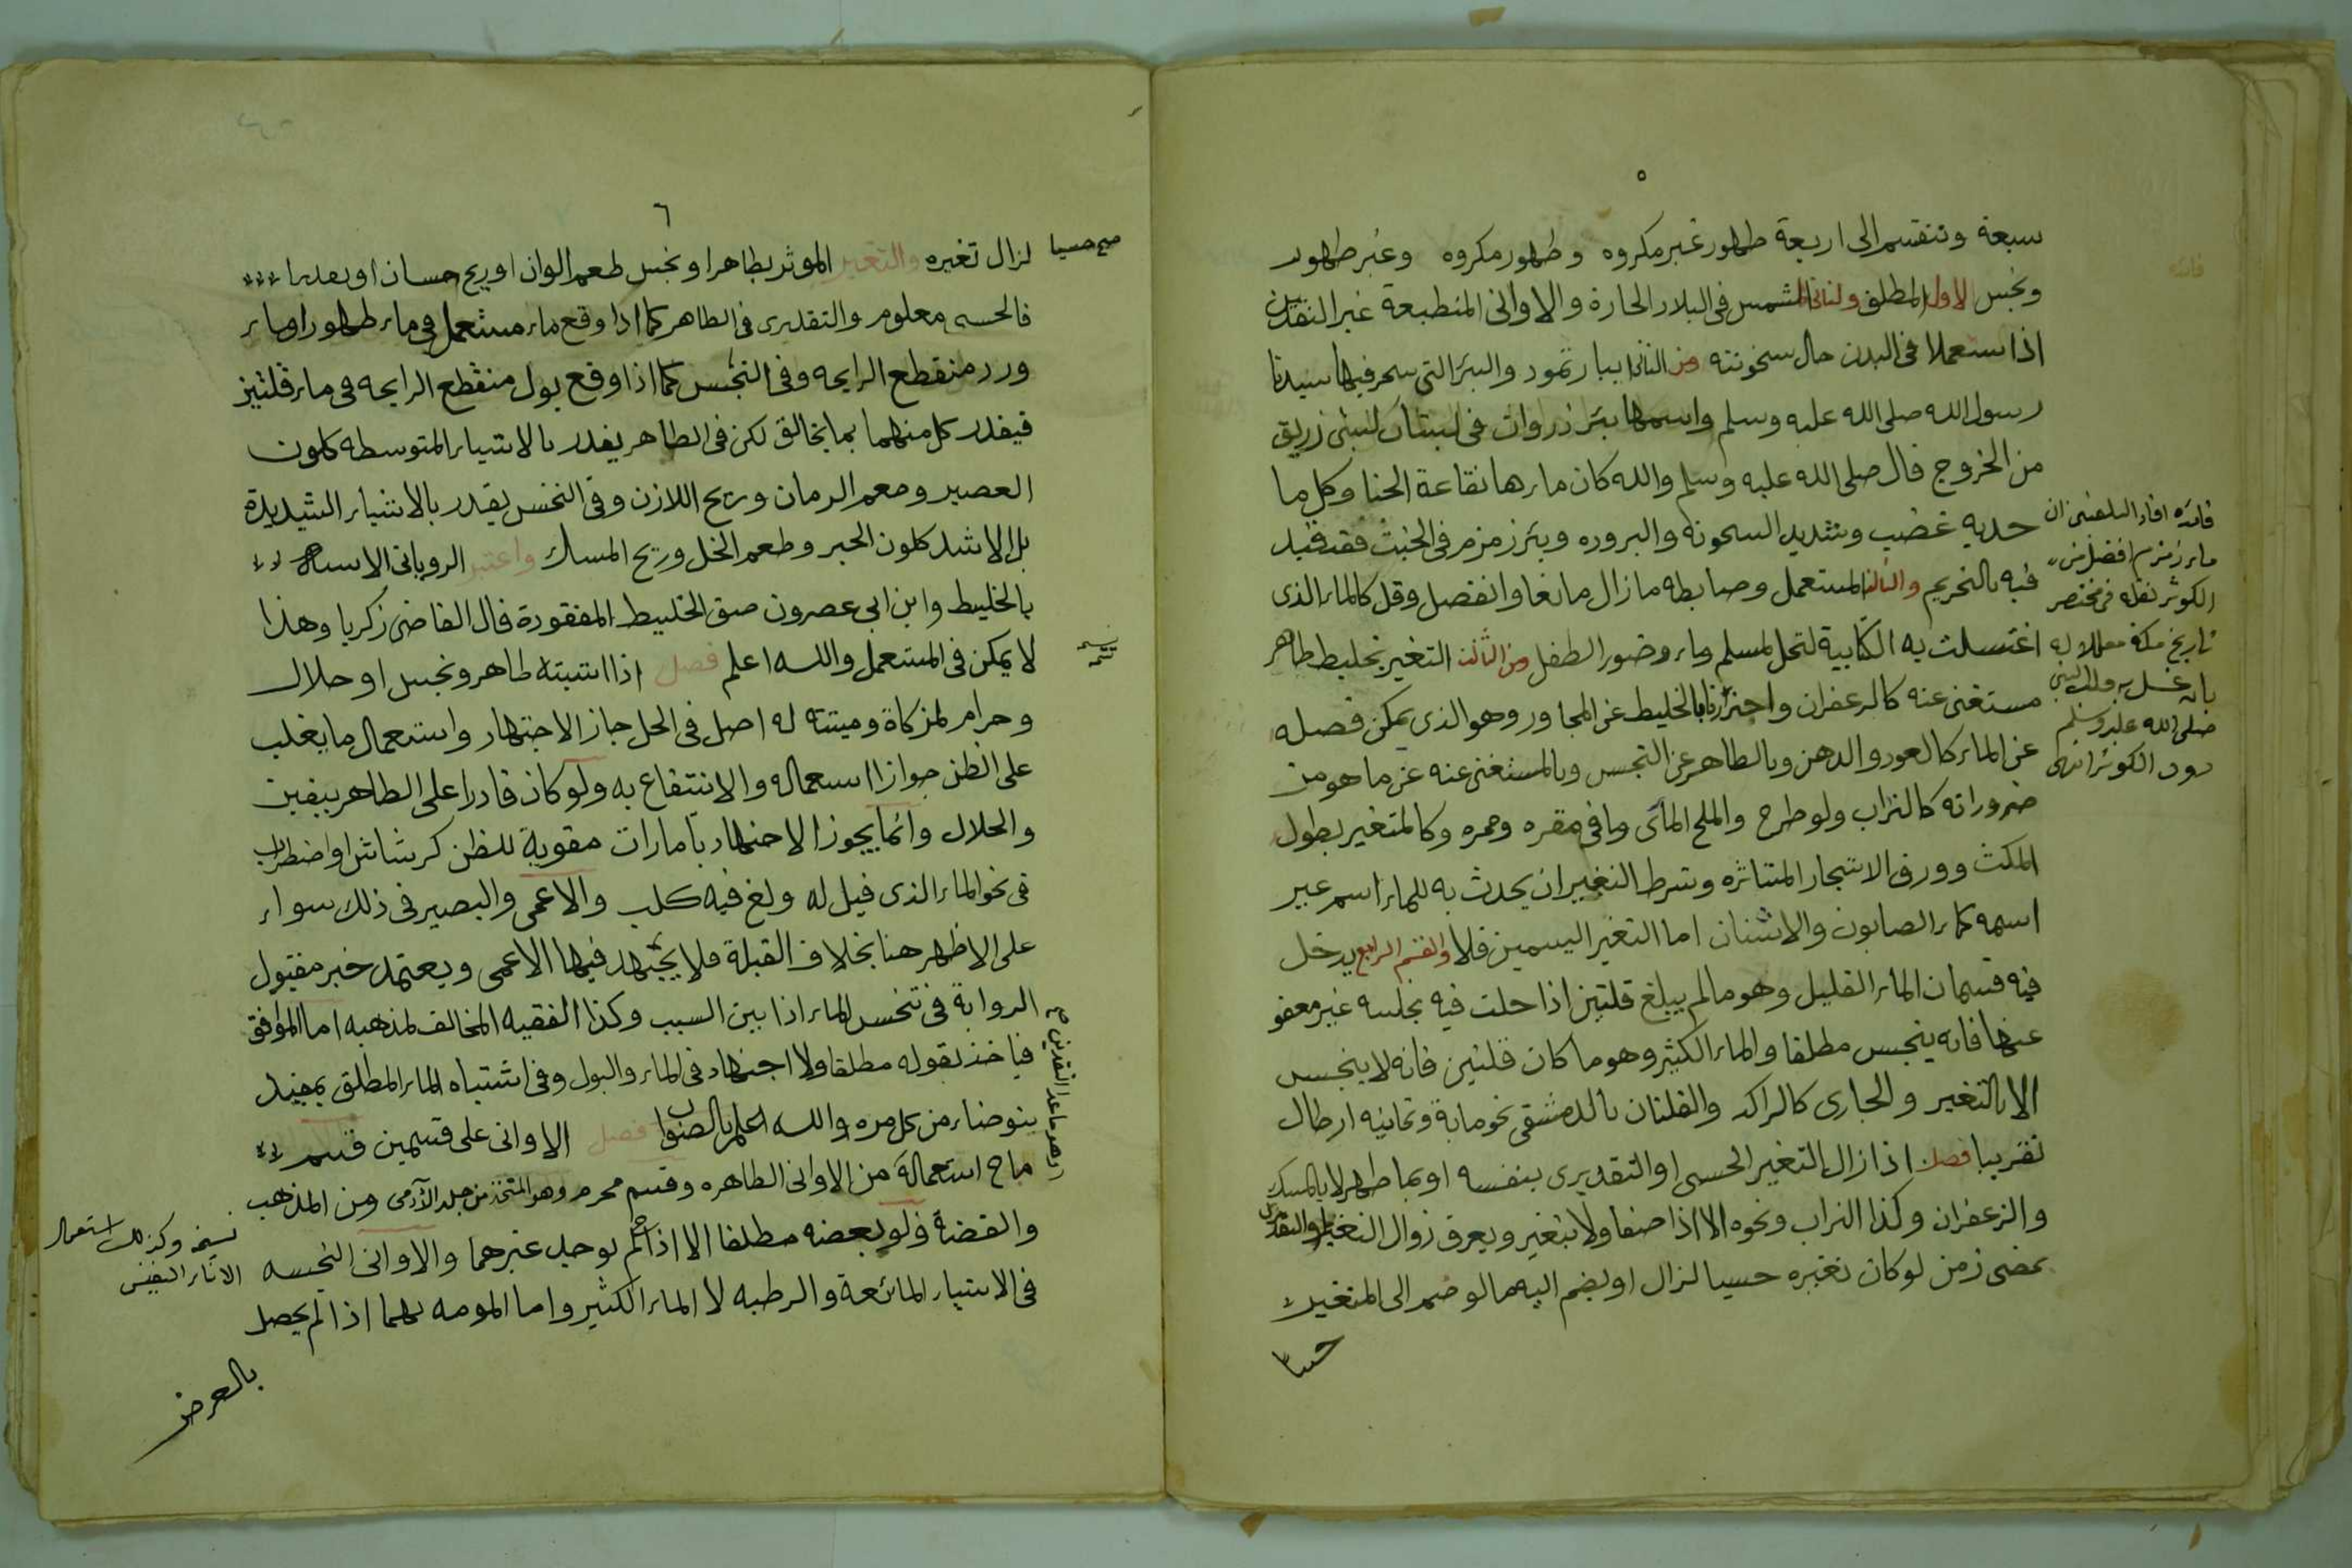 ٥
سبعة وتنقسم الى اربعة طهور غير مكروه وطهور مكروه وغير طهور
ونجس الاول المطلق والثانى الشمس فى البلاد الحارة والاوانى المنطبعة غير النقدين
اذا ستعملا فى البدن حال سخونته ومن الثانى ابيار ثمود والبئر التى سحر فيها سيدنا
رسول الله صلى الله عليه وسلم واسمها بئر ذروان فى لبستان لبنى زريق
من الخزرج قال صلى الله عليه وسلم والله كان ماءها نقاعة الحنا وكل ما
حديه غضب وشديد السخونه والبروده وبئر زمزم فى الخبث فقد قيد
فيه بالتحريم والثالث المستعمل وضابطه مازال مانعا وانفصل وقل كالماء الذى
اغتسلت به الكتابية لتحل لمسلم وماء وضوء الطفل ومن الثالث التغير بخليط طاهر
مستغنى عنه كالزعفران واحترزنا بالخليط عن المجاور وهو الذى يمكن فصله
عن الماء كالعود والدهن وبالطاهر عن النجس وبالمستغنى عنه عن ما هو من
ضروراته كالتراب ولو طرح والملح المائى وما فى مقره وممره وكالمتغير بطول
المكث وورق الاشجار المتناثره وشرط التغير ان يحدث به للماء اسم غير
اسمه كماء الصابون والاشنان اما التغير اليسير فلا والقسم الرابع يدخل
فيه قسمان الماء القليل وهو مالم يبلغ قلتين اذا حلت فيه نجاسه غير معفو
عنها فانه ينجس مطلقا والماء الكثير وهو ما كان قلتين فانه لا ينجس
الا بالتغير والجارى كالراكد والقلتان بالدمشقى نحو ماية وثمانيه ارطال
تقريبا فصل اذا زال التغير الحسى او التقديرى بنفسه او بما طهر لا بالمسك
والزعفران وكذا التراب ونحوه الا اذا صفا ولا بتغير ويعرف زوال التغير التقديرى
بمضى زمن لو كان تغيره حسيا لزال او يضم اليه ما لو ضم الى المتغير
حسيا
فائده افاد البلقينى ان
ماء زمزم افضل من
الكوثر نقله فى مختصر
تاريخ مكة معللا له
بانه غسل به قلب النبى
صلى الله عليه وسلم
دون الكوثر انتهى
٦
صح حسيا
لزال تغيره والتغير الموثر بطاهر او نجس طعم الوان او ريح حسان او تقديرا
فالحسى معلوم والتقديرى فى الطاهر كما اذا وقع ماء مستعمل فى ماء طهور او ماء
ورد منقطع الرايحه وفى النجس كما اذا وقع بول منقطع الرايحه فى ماء قلتين
فيقدر كل منهما بما يخالف لكن فى الطاهر يقدر بالاشياء المتوسطه كلون
العصير وطعم الرمان وريح اللاذن وفى النجس يقدر بالاشياء الشديدة
بل الاشد كلون الحبر وطعم الخل وريح المسك واعتبر الرويانى الاشبه
بالخليط وابن ابى عصرون صفة الخليط المفقودة قال القاضى زكريا وهذا
لا يمكن فى المستعمل والله اعلم فصل اذا اشتبته طاهر ونجس او حلال
وحرام لمزكاة وميتته له اصل فى الحل جاز الاجتهاد واستعمال ما يغلب
على الظن جوازا استعماله والانتفاع به ولو كان قادرا على الطاهر بيقين
والحلال وانما يجوز الاجتهاد بامارات مقوية للظن كرشاش او اضطراب
فى نحو الماء الذى قيل له ولغ فيه كلب والاعمى والبصير فى ذلك سواء
على الاظهر هنا بخلاف القبلة فلا يجتهد فيها الاعمى ويعتمد خبر مقبول
الرواية فى تنجس الماء اذا بين السبب وكذا الفقيه المخالف لمذهبه اما الموافق
فياخذ بقوله مطلقا ولا اجتهاد فى الماء والبول وفى اشتباه الماء المطلق بمقيد
يتوضاء من كل مره والله اعلم بالصواب فصل الاوانى على قسمين قسم
مباح استعماله من الاوانى الطاهره وقسم محرم وهو المتخذ من جلد الآدمى ومن المذهب
والفضة ولو بعضه مطلقا الا اذا لم يوجد غيرهما والاوانى النجسه
فى الاشياء المائعة والرطبه لا الماء الكثير واما المموه بهما اذا لم يحصل
بالعرض
وهو ما عدا النقدين صح
نسخه وكذلك استعمال
الاناء النفيس